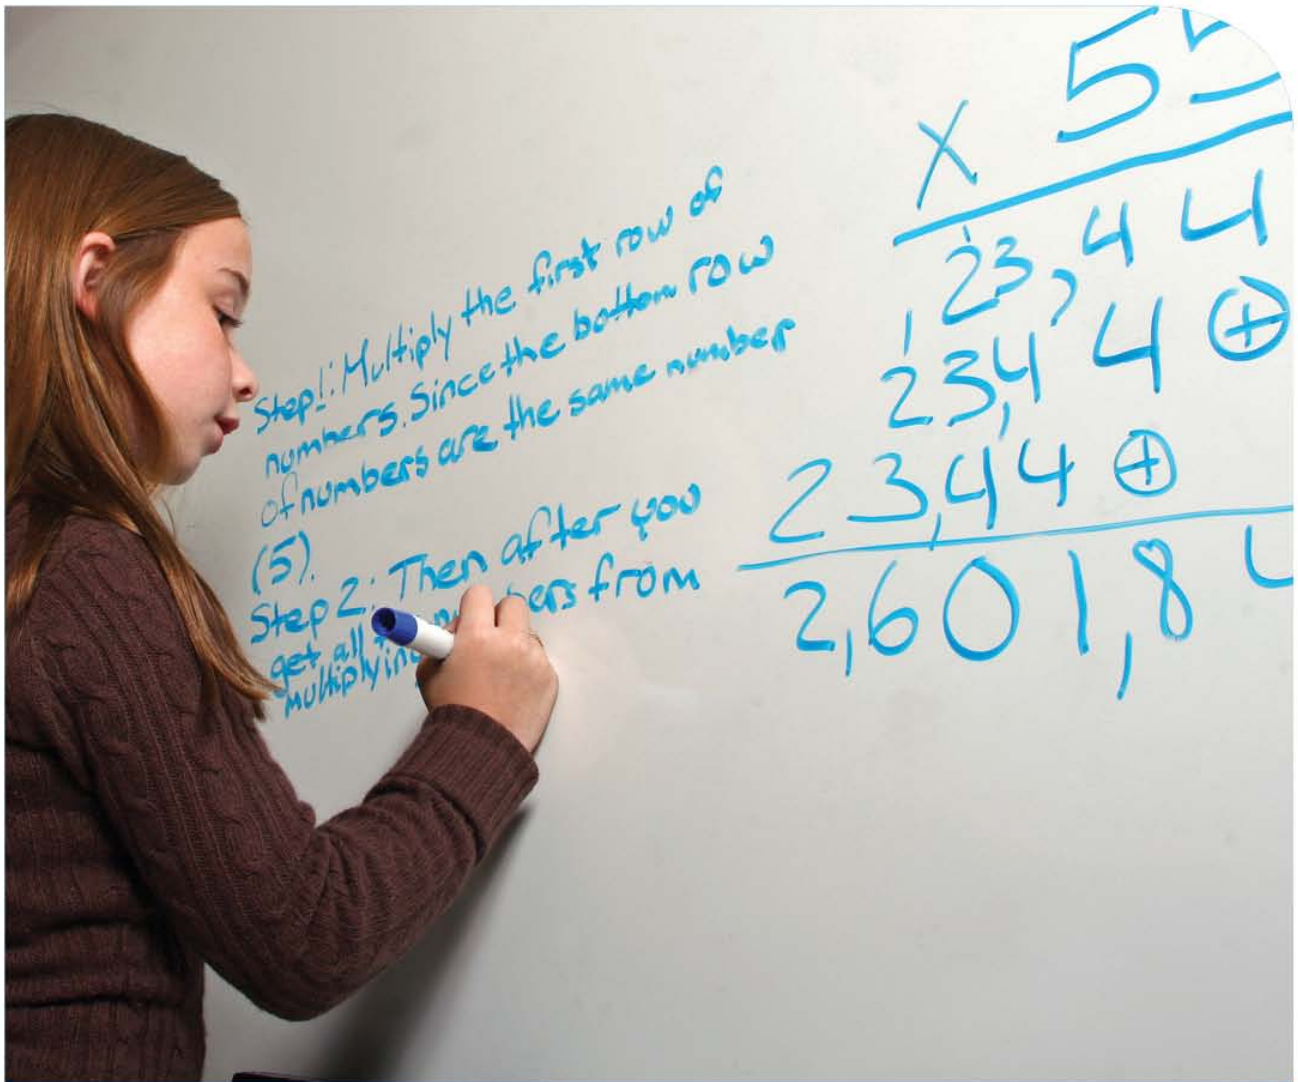 Step 1: Multiply the first row of
numbers. Since the bottom row
of numbers are the same number
(5).
Step 2: Then after you
get all from
multiplying
55
X
23,44
23,44 ⊕
23,44 ⊕
2,601,8